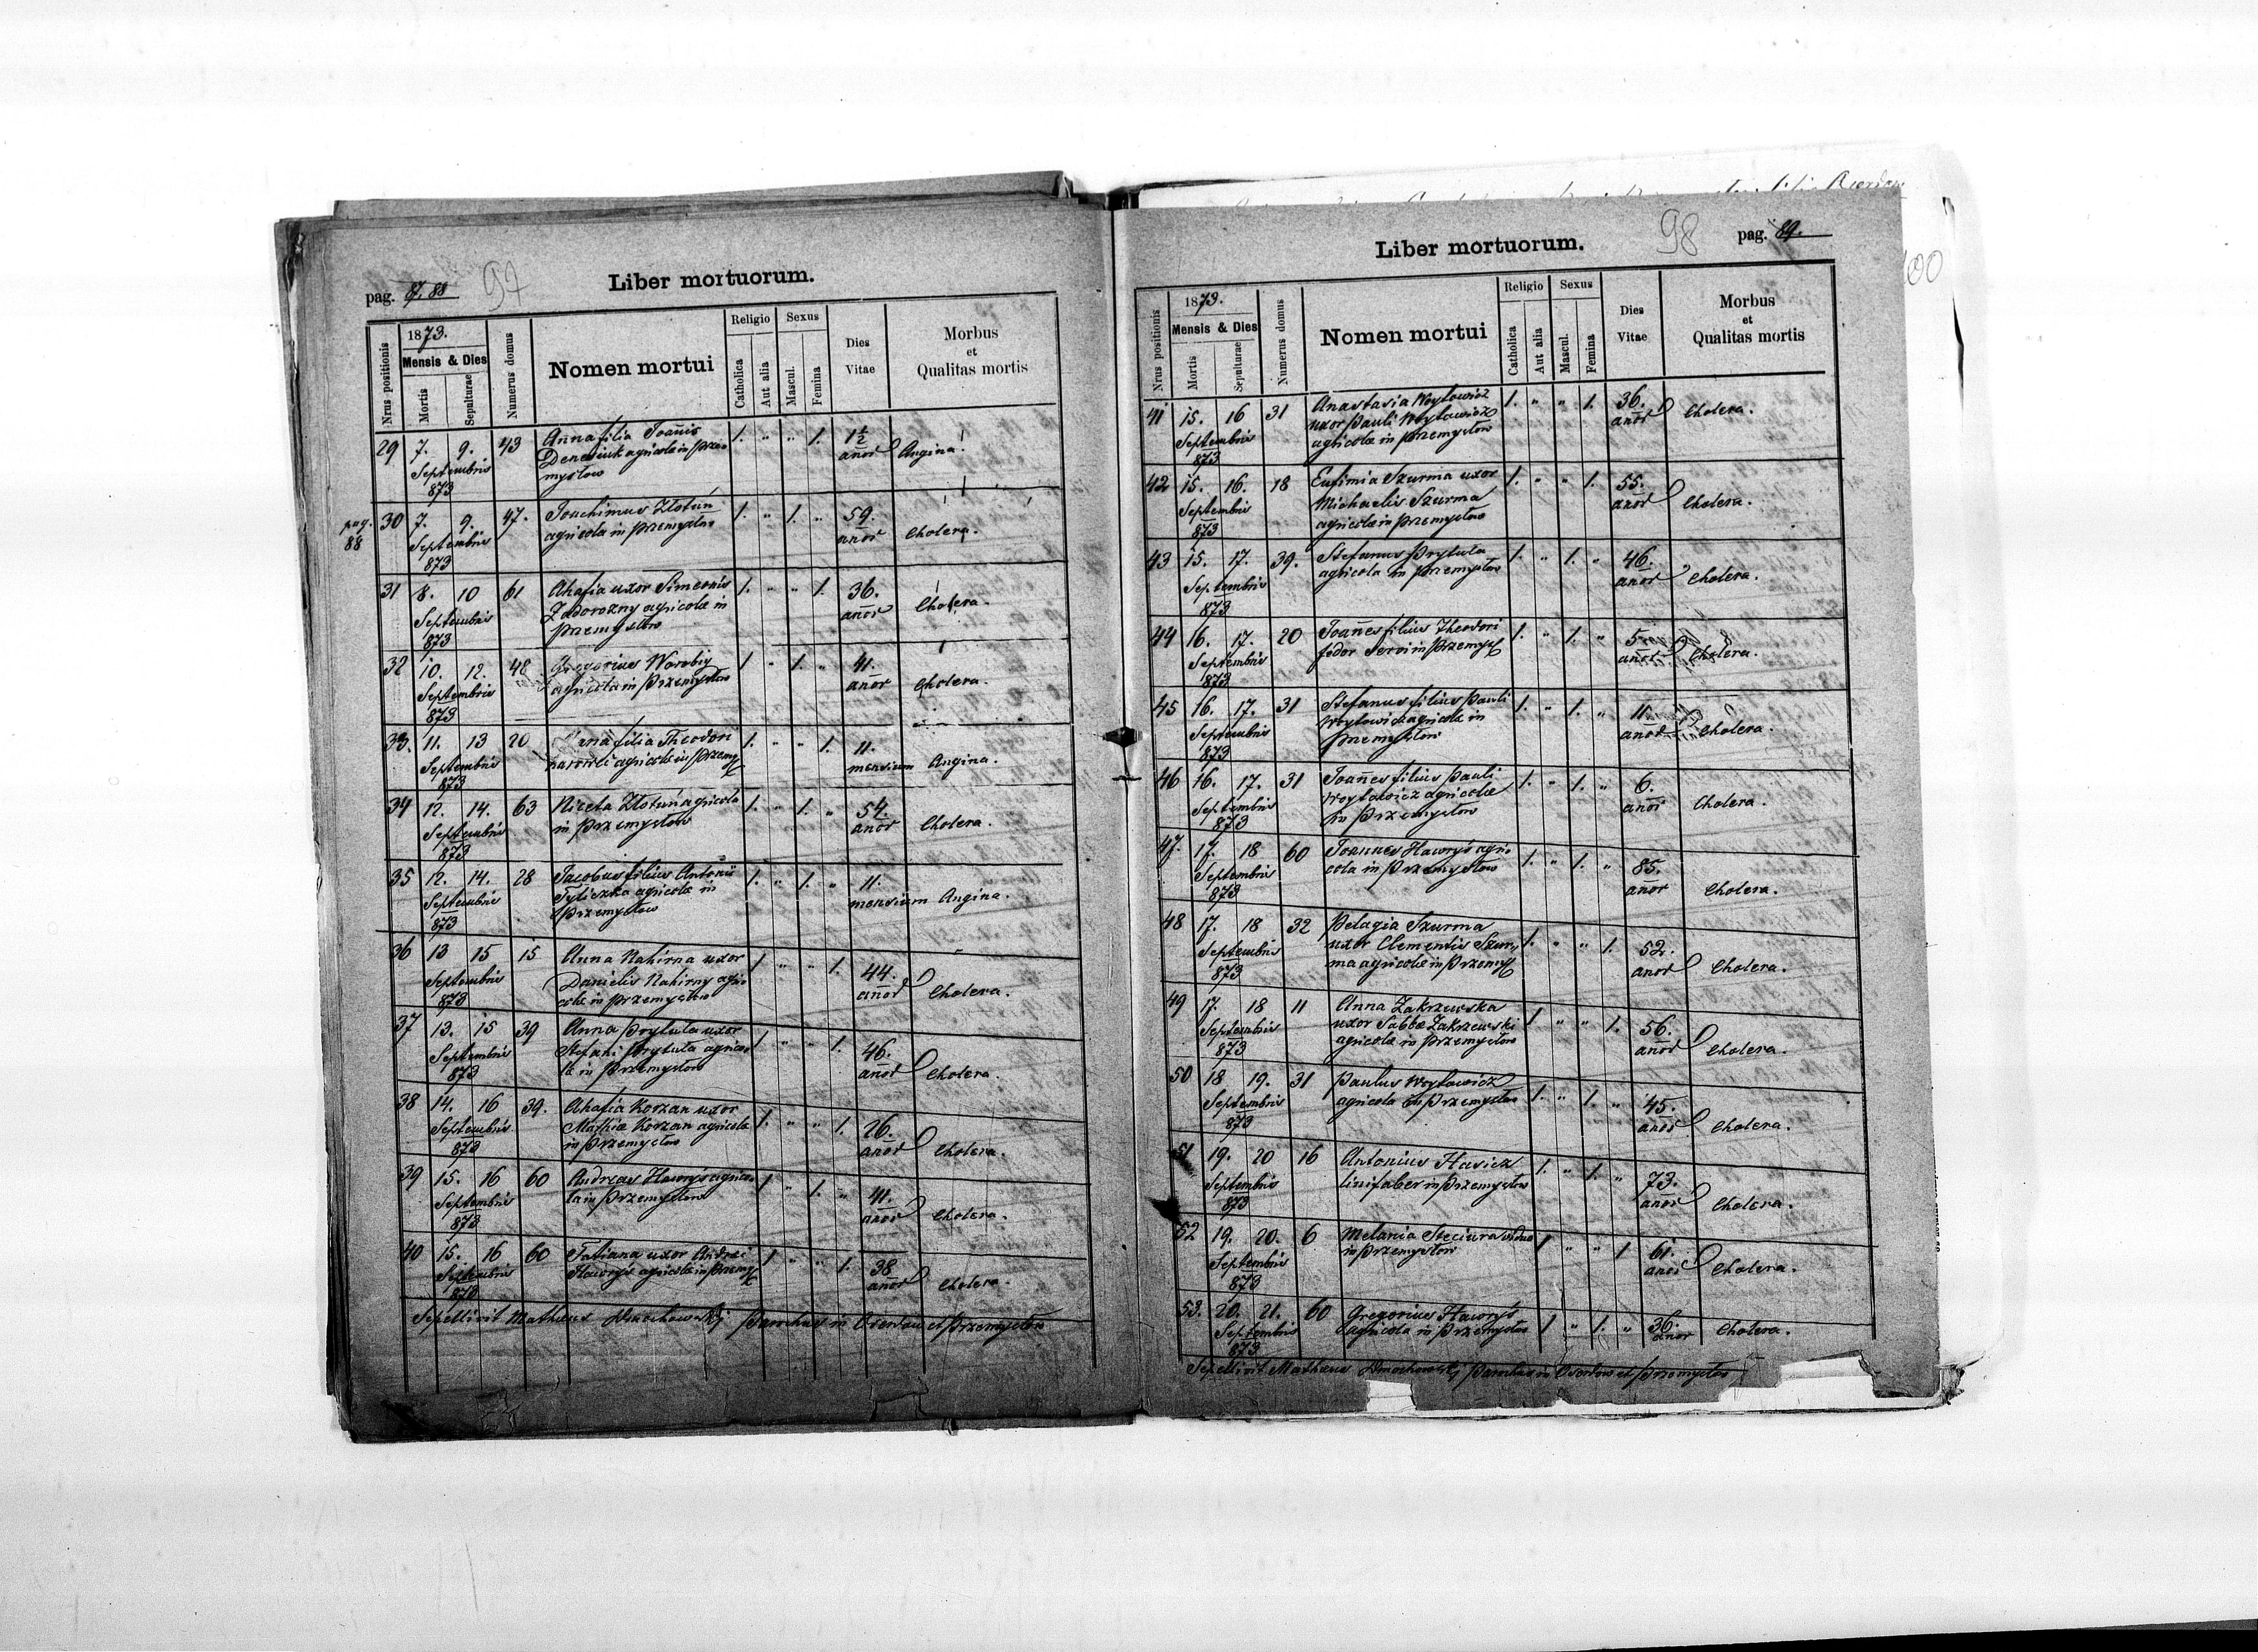 pag. 87. 88
97
Liber mortuorum.
Nrus positionis
1873.
Mensis & Dies
Mortis
Sepulturae
Numerus domus
Nomen mortui
Religio
Catholica
Aut alia
Sexus
Mascul.
Femina
Dies
Vitae
Morbus
et
Qualitas mortis
29 7. 9. 43 Anna filia Joañis 1. " " 1. 1½
Septembris agricolæ in Prze= anor Angina.
873 mysłow
pag. 88
30 7. 9. 47. Joachimus Złotuń 1. " 1. " 59.
Septembris agricola in Przemysłow anor Cholera.
873
31 8. 10 61 Ahafia uxor Simeonis 1. " " 1. 36.
Septembris Zadorozny agricolæ in anor Cholera.
873 Przemysłow
32 10. 12. 48 Gregorius Worobiy 1 " 1. " 41.
Septembris agricola in Przemysłow anor Cholera.
873
33. 11. 13 20 filia Theodori 1. " " 1. 11.
Septembris agricolæ in Przemy mensium Angina.
873
34 12. 14. 63 Niceta Złotuń agricola 1. " 1. " 54.
Septembris in Przemysłow anor Cholera.
873
35 12. 14. 28 Jacobus filius Antonii 1. " 1. " 11.
Septembris Tyliczka agricolæ in mensium Angina.
873 Przemysłow
36 13 15 15 Anna Nahirna uxor 1 " " 1. 44.
Septembris Danielis Nahirny agri= anor Cholera.
873 colæ in Przemysłow
37 13. 15 39 Anna Prytuła uxor 1 " " 1. 46.
Septembris Stefani Prytuła agrico= anor Cholera.
873 læ in Przemysłow
38 14. 16 39. Ahafia Korzan uxor 1. " " 1. 26.
Septembris Korzan agricolæ anor Cholera.
873 in Przemysłow
39 15. 16 60 Andreas Hawryś agrico= 1 " 1. " 41.
Septembris la in Przemysłow anor Cholera.
873
40 15. 16 60 Tatiana uxor Andreæ 1 " " 1. 38
Septembris Hawryś agricolæ in Przemy anor Cholera.
873
Sepellivit Mathæus Parochus in et Przemysłow
98
pag. 89.
Liber mortuorum.
Nrus positionis
1873.
Mensis & Dies
Mortis
Sepulturae
Numerus domus
Nomen mortui
Religio
Catholica
Aut alia
Sexus
Mascul.
Femina
Dies
Vitae
Morbus
et
Qualitas mortis
100
41 15. 16 31 Anastasia Woytowicz 1. " " 1. 36.
Septembris uxor Pauli Woytowicz anor Cholera.
873 agricolæ in Przemysłow
42 15. 16. 18 Eufimia Szurma uxor 1. " " 1. 55.
Septembris Michaelis Szurma anor Cholera.
873 agricolæ in Przemysłow
43 15. 17. 39. Stefanus Prytuła 1. " 1. " 46.
Septembris agricola in Przemysłow anor Cholera.
873
44 16. 17. 20 Joañes filius Theodori 1. " 1. " 5
Septembris in Przemysł anor Cholera.
873
45 16. 17. 31 Stefanus filius Pauli 1. " 1. " 11.
Septembris Woytowicz agricolæ in anor Cholera.
873 Przemysłow
46 16. 17. 31 Joañes filius Pauli 1. " 1. " 6.
Septembris Woytowicz agricolæ anor Cholera.
873 in Przemysłow
47. 17. 18 60 Joannes Hawryś agri= 1. " 1. " 85.
Septembris cola in Przemysłow anor Cholera.
873
48 17. 18 32 Pelagia Szurma
Septembris uxor Clementis Szur= 1. " " 1. 52.
873 ma agricolæ in Przemy anor Cholera.
49 17. 18 11 Anna Zakrzewska
Septembris uxor Sabbæ Zakrzewski 1 " " 1. 56.
873 agricolæ in Przemysłow anor Cholera.
50 18 19. 31 Paulus Woytowicz
Septembris agricola in Przemysłow 1. " 1. " 45.
873 anor Cholera.
51 19. 20 16 Antonius Hasicz 1. " 1. " 73.
Septembris linifaber in Przemysłow anor Cholera.
873
52 19. 20. 6 Melania Steciura vidua 1 " " 1 61.
Septembris in Przemysłow anor Cholera.
873
53. 20. 21. 60 Gregorius Hawryś 1 " 1. " 36.
Septembris agricola in Przemysłow anor Cholera.
873
Sepellivit Mathæus Parochus in et Przemysłow